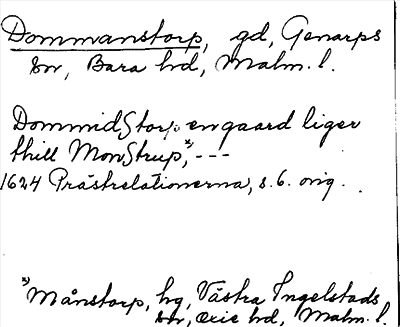 Dommanstorp, gd, Genarps
sn, Bara hd, Malm. l.
DommidStorp en gaard liger
thill MonStrup,ˣ⁾ ---
1624 Prästrelationerna, s. 6. orig.
ˣ⁾ Månstorp, hg, Västra Ingelstads
sn, Oxie hd, Malm. l.